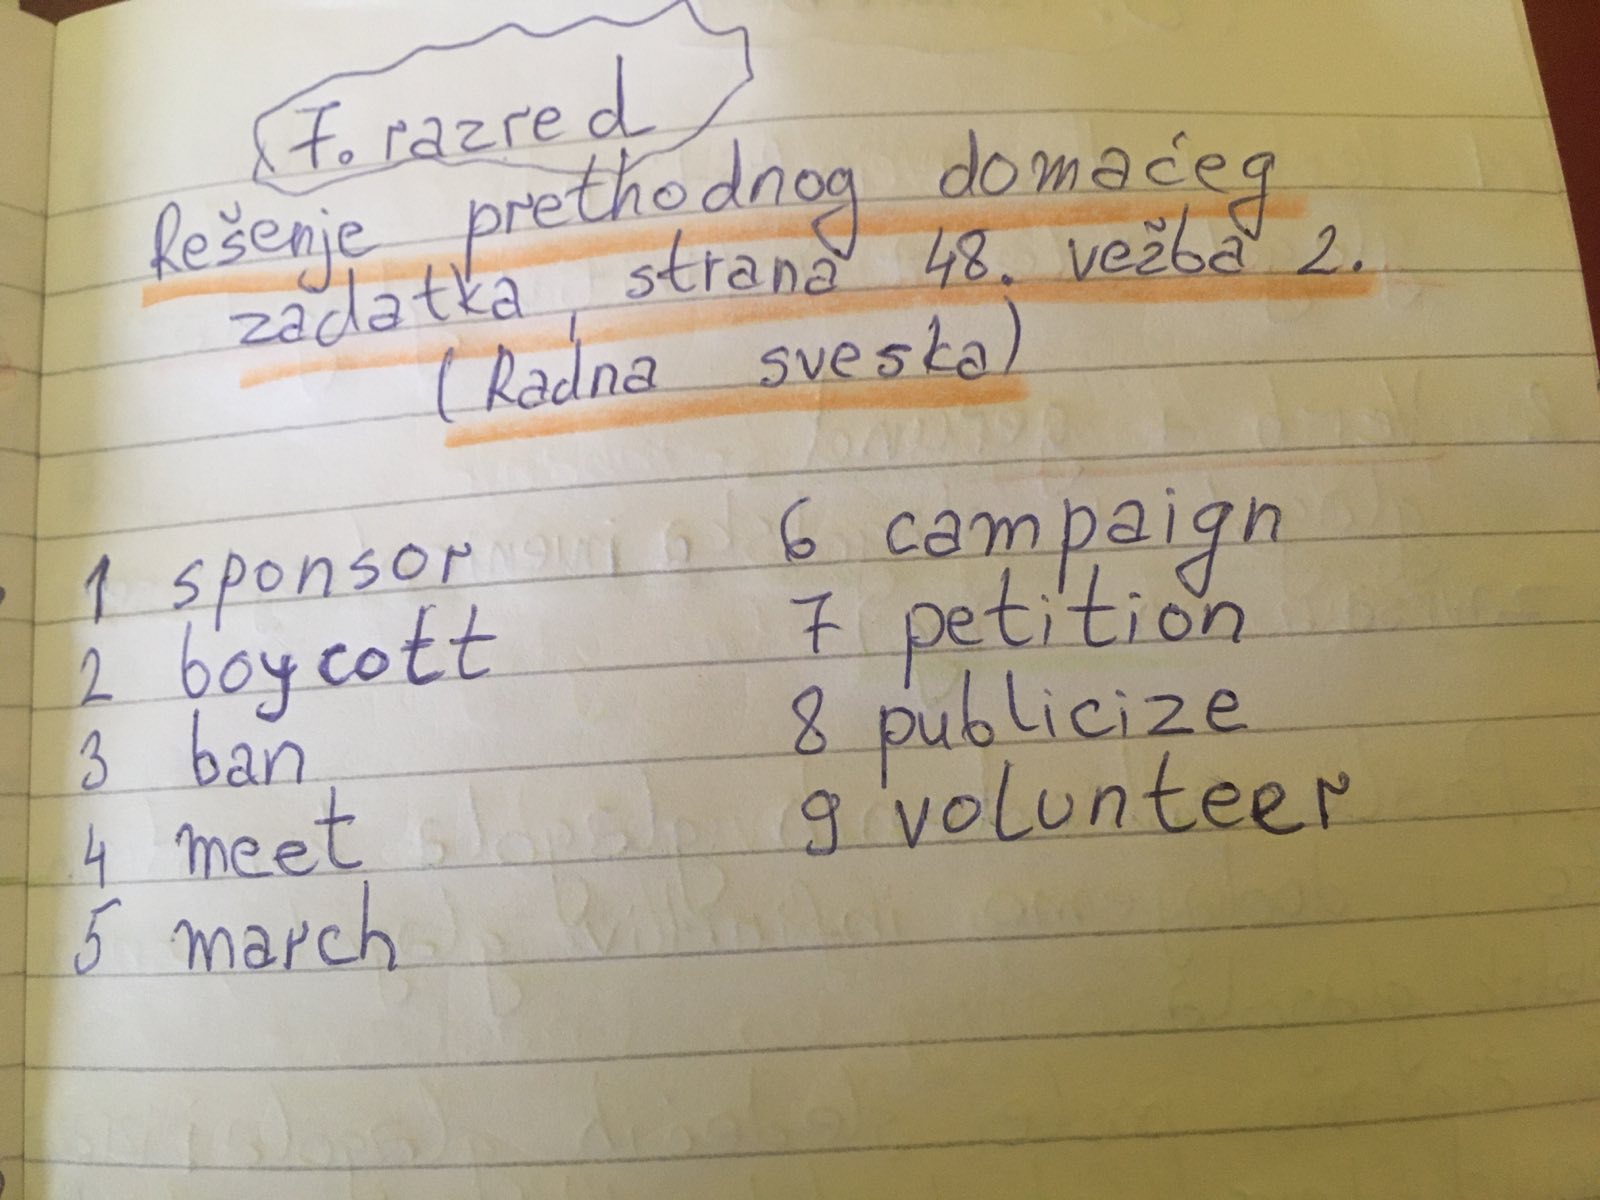 7. razred
Rešenje prethodnog domaćeg
zadatka, strana 48. vežba 2.
(Radna sveska)
1 sponsor
2 boycott
3 ban
4 meet
5 march
6 campaign
7 petition
8 publicize
9 volunteer